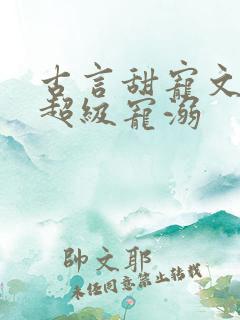 古言甜寵文
超級寵溺
帥文耶
未经同意禁止转载